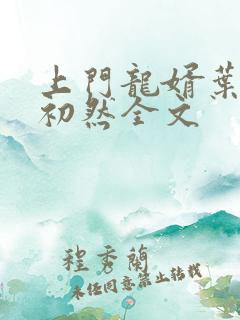 上門龍婿葉
初然全文
程秀蘭
未任同意禁止转载